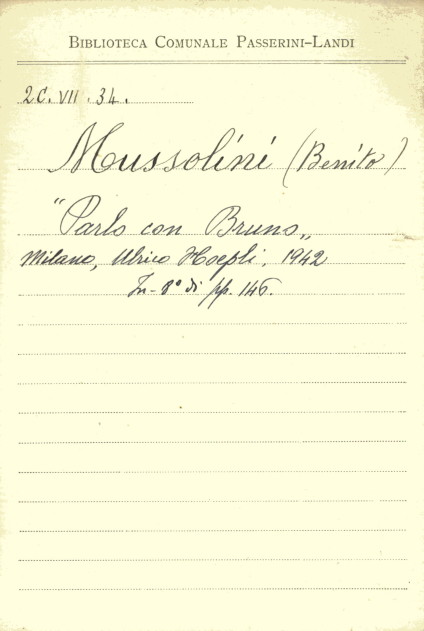 BIBLIOTECA COMUNALE PASSERINI-LANDI
2C. VII. 34.
Mussolini (Benito)
"Parlo con Bruno„
Milano, Ulrico Hoepli, 1942
In-8° di pp. 146.